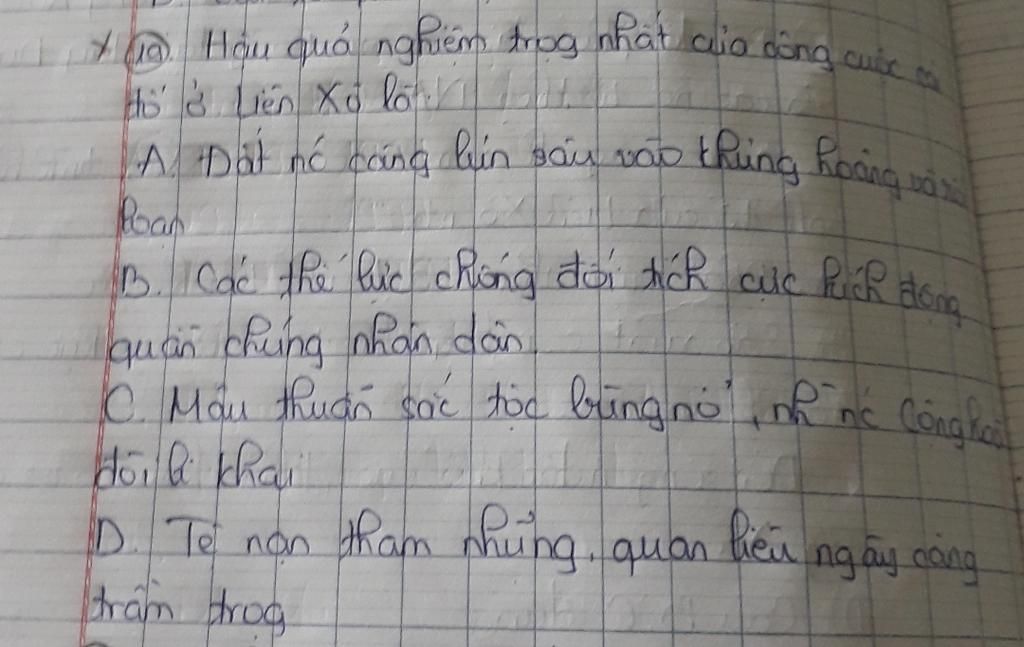 10. Hậu quả nghiêm trog nhất của công cuộc cải
tổ ở Liên Xô là
A. Đất nc càng lún sâu vào khủng hoảng và rối
loạn
B. Các thế lực chống đối tích cực kích động
quần chúng nhân dân
C. Mâu thuẫn sắc tộc bùng nổ, nh~ nc cộng hoà
đòi li khai
D. Tệ nạn tham nhũng, quan liêu ngày càng
trầm trog